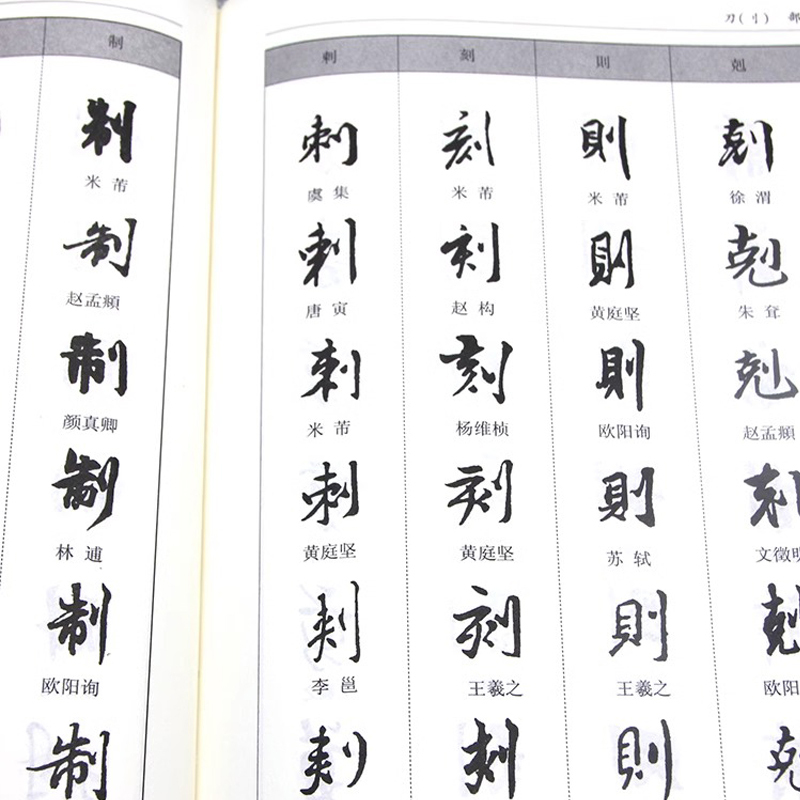 刀(刂) 部
制
制
米芾
制
赵孟頫
制
颜真卿
制
林逋
制
欧阳询
制
刺 刻 則 剋
刺 刻 則 剋
虞集 米芾 米芾 徐渭
刺 刻 則 剋
唐寅 赵构 黄庭坚 朱耷
刺 刻 則 剋
米芾 杨维桢 欧阳询 赵孟頫
刺 刻 則 剋
黄庭坚 黄庭坚 苏轼 文徵明
刺 刻 則 剋
李邕 王羲之 王羲之 欧阳
刺 刻 則 剋